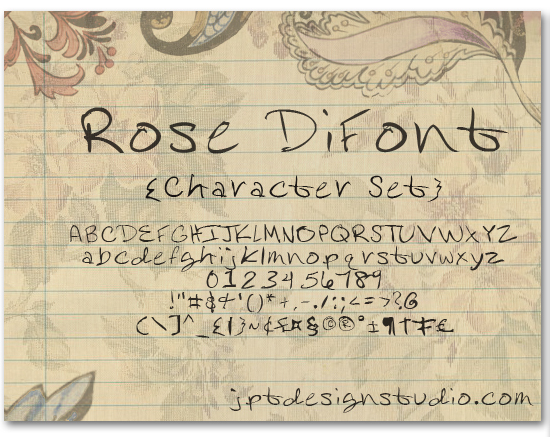 Rose DiFont
{Character Set}
ABCDEFGHIJKLMNOPQRSTUVWXYZ
abcdefghijklmnopqrstuvwxyz
0123456789
!"#$+'()*+,-./:;<=>?@
(\]^_{|}~¢£¤§©®°±¶†₣£
jptdesignstudio.com